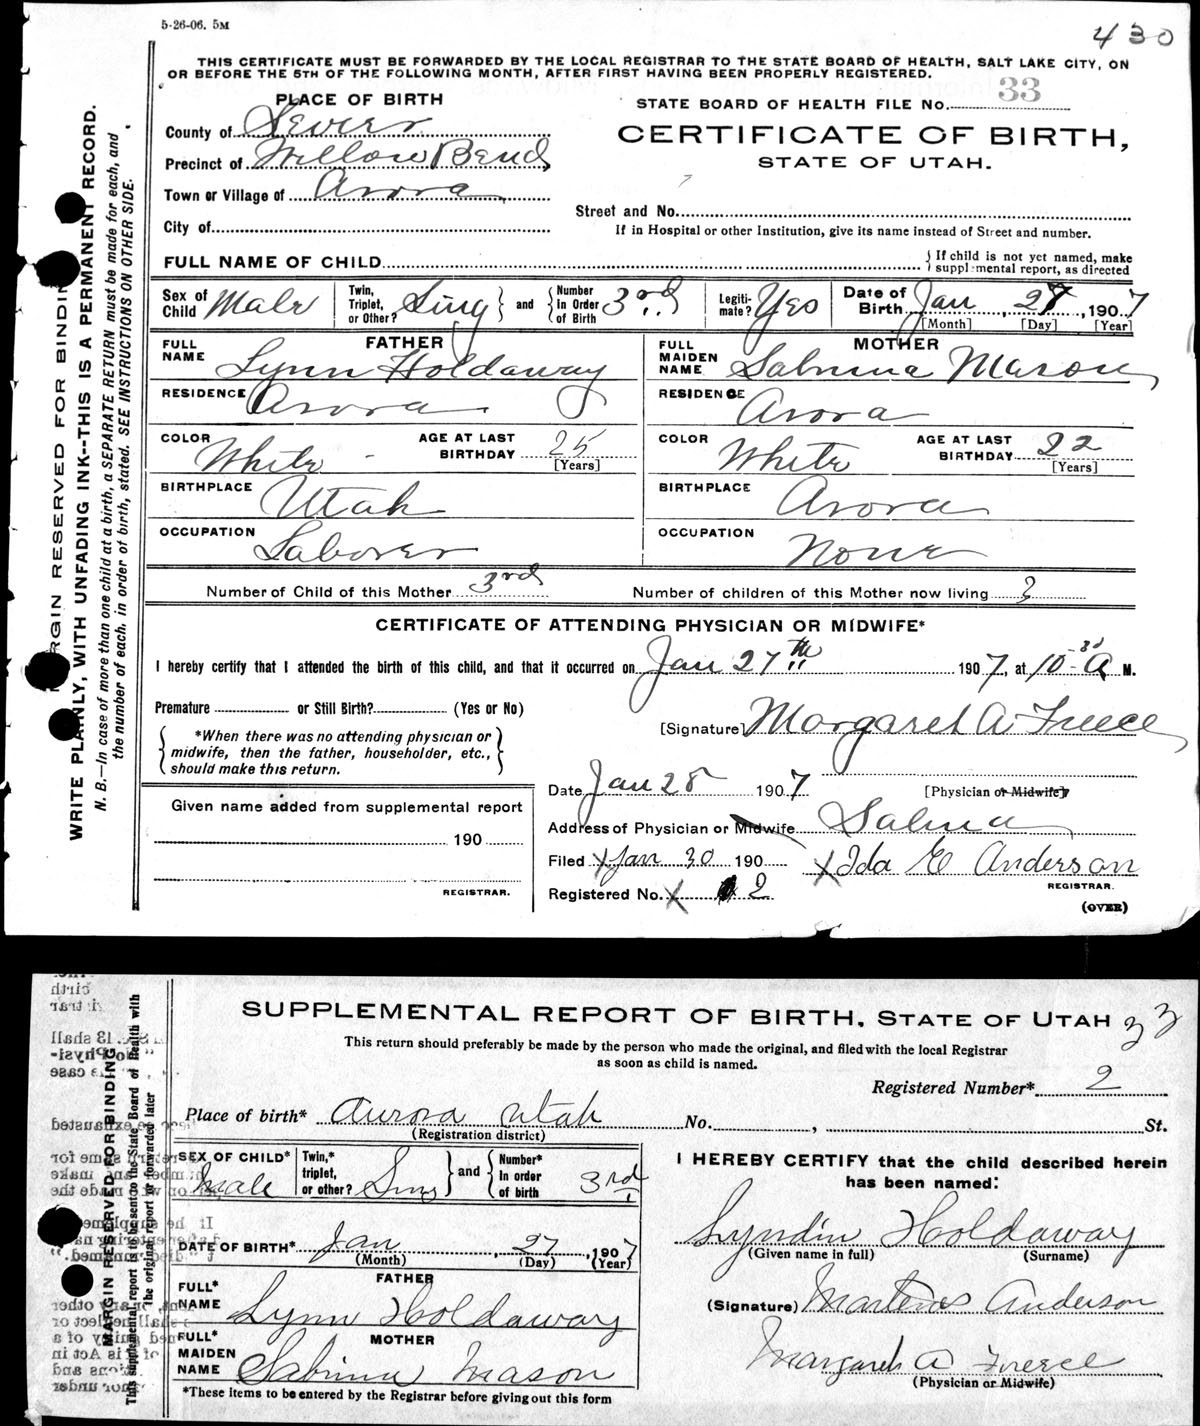 5-26-06. 5M
430
THIS CERTIFICATE MUST BE FORWARDED BY THE LOCAL REGISTRAR TO THE STATE BOARD OF HEALTH, SALT LAKE CITY, ON
OR BEFORE THE 5TH OF THE FOLLOWING MONTH, AFTER FIRST HAVING BEEN PROPERLY REGISTERED.
PLACE OF BIRTH
STATE BOARD OF HEALTH FILE No. 33
County of Sevier
CERTIFICATE OF BIRTH,
Precinct of Willow Bend
STATE OF UTAH.
Town or Village of Arora
Street and No.
City of
If in Hospital or other Institution, give its name instead of Street and number.
FULL NAME OF CHILD
If child is not yet named, make
supplemental report, as directed
Sex of Child Male
Twin, Triplet, or Other? Sing and Number In Order of Birth 3rd
Legitimate? Yes
Date of Birth Jan, 27, 1907
[Month] [Day] [Year]
FATHER
FULL NAME Lynn Holdaway
RESIDENCE Arora
COLOR White AGE AT LAST BIRTHDAY 25
[Years]
BIRTHPLACE Utah
OCCUPATION Laborer
MOTHER
FULL MAIDEN NAME Sabrina Mason
RESIDENCE Arora
COLOR White AGE AT LAST BIRTHDAY 22
[Years]
BIRTHPLACE Arora
OCCUPATION None
Number of Child of this Mother 3rd
Number of children of this Mother now living 3
CERTIFICATE OF ATTENDING PHYSICIAN OR MIDWIFE*
I hereby certify that I attended the birth of this child, and that it occurred on Jan 27th 1907, at 10-30 A M.
Premature or Still Birth? (Yes or No)
[Signature] Margaret A Freece
*When there was no attending physician or
midwife, then the father, householder, etc.,
should make this return.
Date Jan 28 1907
[Physician or Midwife]
Given name added from supplemental report
190
REGISTRAR.
Address of Physician or Midwife Salina
Filed X Jan 30 190
X Ida E Anderson
REGISTRAR.
Registered No. X 2
(OVER)
MARGIN RESERVED FOR BINDING
WRITE PLAINLY, WITH UNFADING INK--THIS IS A PERMANENT RECORD.
N. B.—In case of more than one child at a birth, a SEPARATE RETURN must be made for each, and
the number of each, in order of birth, stated. SEE INSTRUCTIONS ON OTHER SIDE.
SUPPLEMENTAL REPORT OF BIRTH, STATE OF UTAH 33
This return should preferably be made by the person who made the original, and filed with the local Registrar
as soon as child is named.
Registered Number* 2
Place of birth* Aurora Utah No. , St.
(Registration district)
SEX OF CHILD* Male
Twin,* triplet, or other? Sing and Number* in order of birth 3rd
DATE OF BIRTH* Jan, 27, 1907
(Month) (Day) (Year)
FATHER
FULL* NAME Lynn Holdaway
MOTHER
FULL* MAIDEN NAME Sabrina Mason
*These items to be entered by the Registrar before giving out this form
I HEREBY CERTIFY that the child described herein
has been named:
Lyndin Holdaway
(Given name in full) (Surname)
(Signature) Martenus Anderson
Margaret A Freece
(Physician or Midwife)
MARGIN RESERVED FOR BINDING
This supplemental report to be sent to the State Board of Health with
the original report or forwarded later